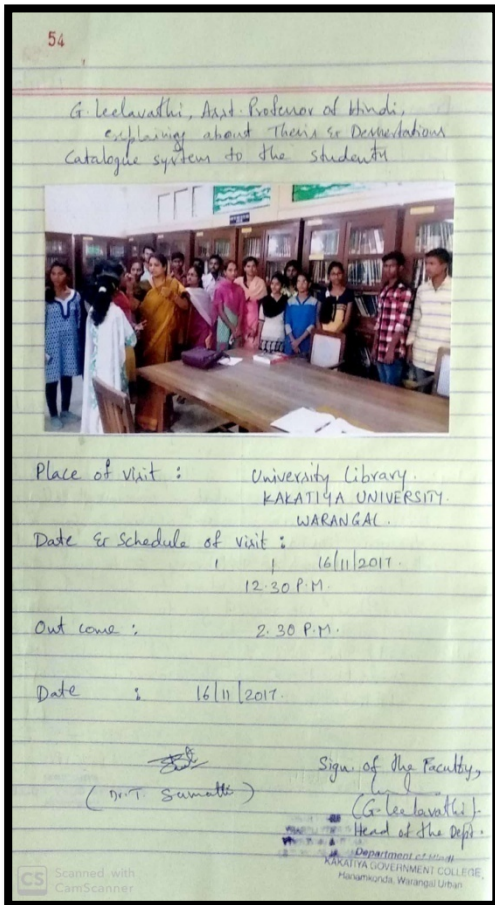 54
G. Leelavathi, Asst. Professor of Hindi,
explaining about Thesis & Dessertations
Catalogue system to the students
Place of visit : University Library.
KAKATIYA UNIVERSITY.
WARANGAL.
Date & Schedule of visit :
16/11/2017.
12.30 P.M.
Out come : 2.30 P.M.
Date : 16/11/2017.
Sign. of the Faculty,
(Dr. T. Sumathi)
(G. Leelavathi).
Head of the Dept.
Department of Hindi
KAKATIYA GOVERNMENT COLLEGE,
Hanamkonda, Warangal Urban
CS Scanned with
CamScanner